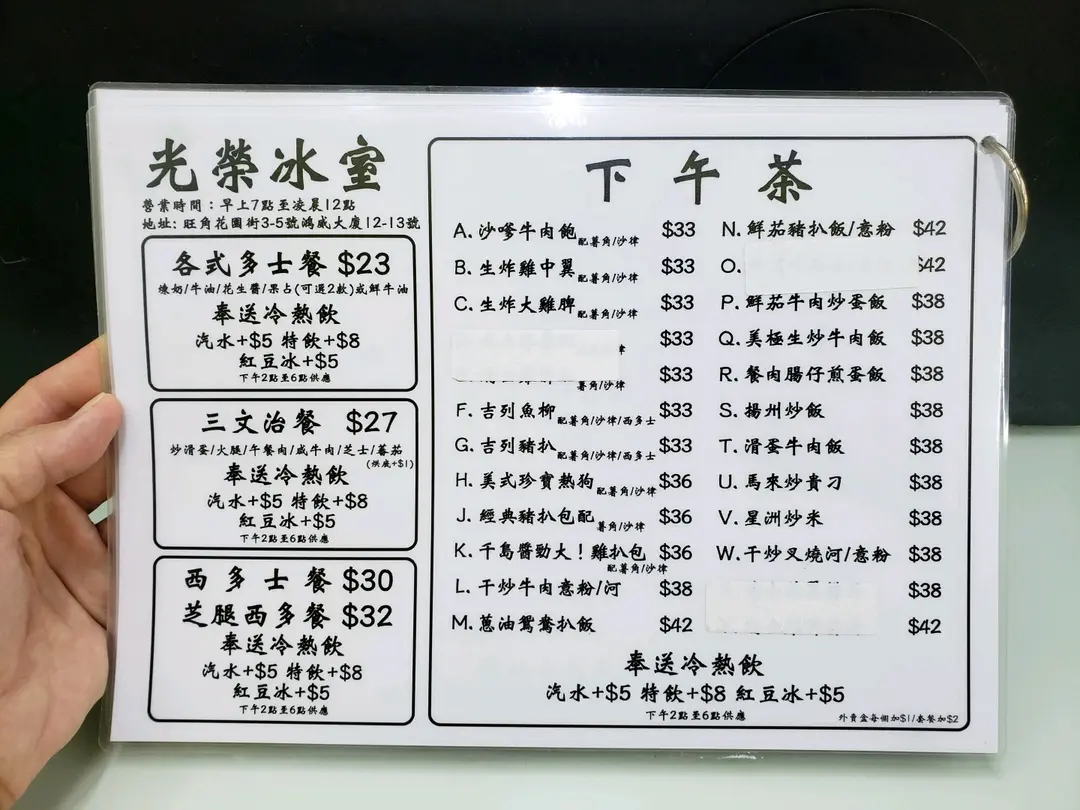 光榮冰室
營業時間：早上7點至凌晨12點
地址：旺角花園街3-5號鴻威大廈12-13號
各式多士餐 $23
煉奶/牛油/花生醬/果占(可選2款)或鮮牛油
奉送冷熱飲
汽水+$5 特飲+$8
紅豆冰+$5
下午2點至6點供應
三文治餐 $27
炒滑蛋/火腿/午餐肉/咸牛肉/芝士/蕃茄
(烘底+$1)
奉送冷熱飲
汽水+$5 特飲+$8
紅豆冰+$5
下午2點至6點供應
西多士餐 $30
芝腿西多餐 $32
奉送冷熱飲
汽水+$5 特飲+$8
紅豆冰+$5
下午2點至6點供應
下午茶
A. 沙嗲牛肉飽 配薯角/沙律 $33
B. 生炸雞中翼 配薯角/沙律 $33
C. 生炸大雞脾 配薯角/沙律 $33
$33
薯角/沙律 $33
F. 吉列魚柳 配薯角/沙律/西多士 $33
G. 吉列豬扒 配薯角/沙律/西多士 $33
H. 美式珍寶熱狗 配薯角/沙律 $36
J. 經典豬扒包配 薯角/沙律 $36
K. 千島醬勁大！雞扒包 $36
配薯角/沙律
L. 干炒牛肉意粉/河 $38
M. 蔥油鴛鴦扒飯 $42
N. 鮮茄豬扒飯/意粉 $42
O. $42
P. 鮮茄牛肉炒蛋飯 $38
Q. 美極生炒牛肉飯 $38
R. 餐肉腸仔煎蛋飯 $38
S. 揚州炒飯 $38
T. 滑蛋牛肉飯 $38
U. 馬來炒貴刁 $38
V. 星洲炒米 $38
W. 干炒叉燒河/意粉 $38
$38
$42
奉送冷熱飲
汽水+$5 特飲+$8 紅豆冰+$5
下午2點至6點供應
外賣盒每個加$1/套餐加$2